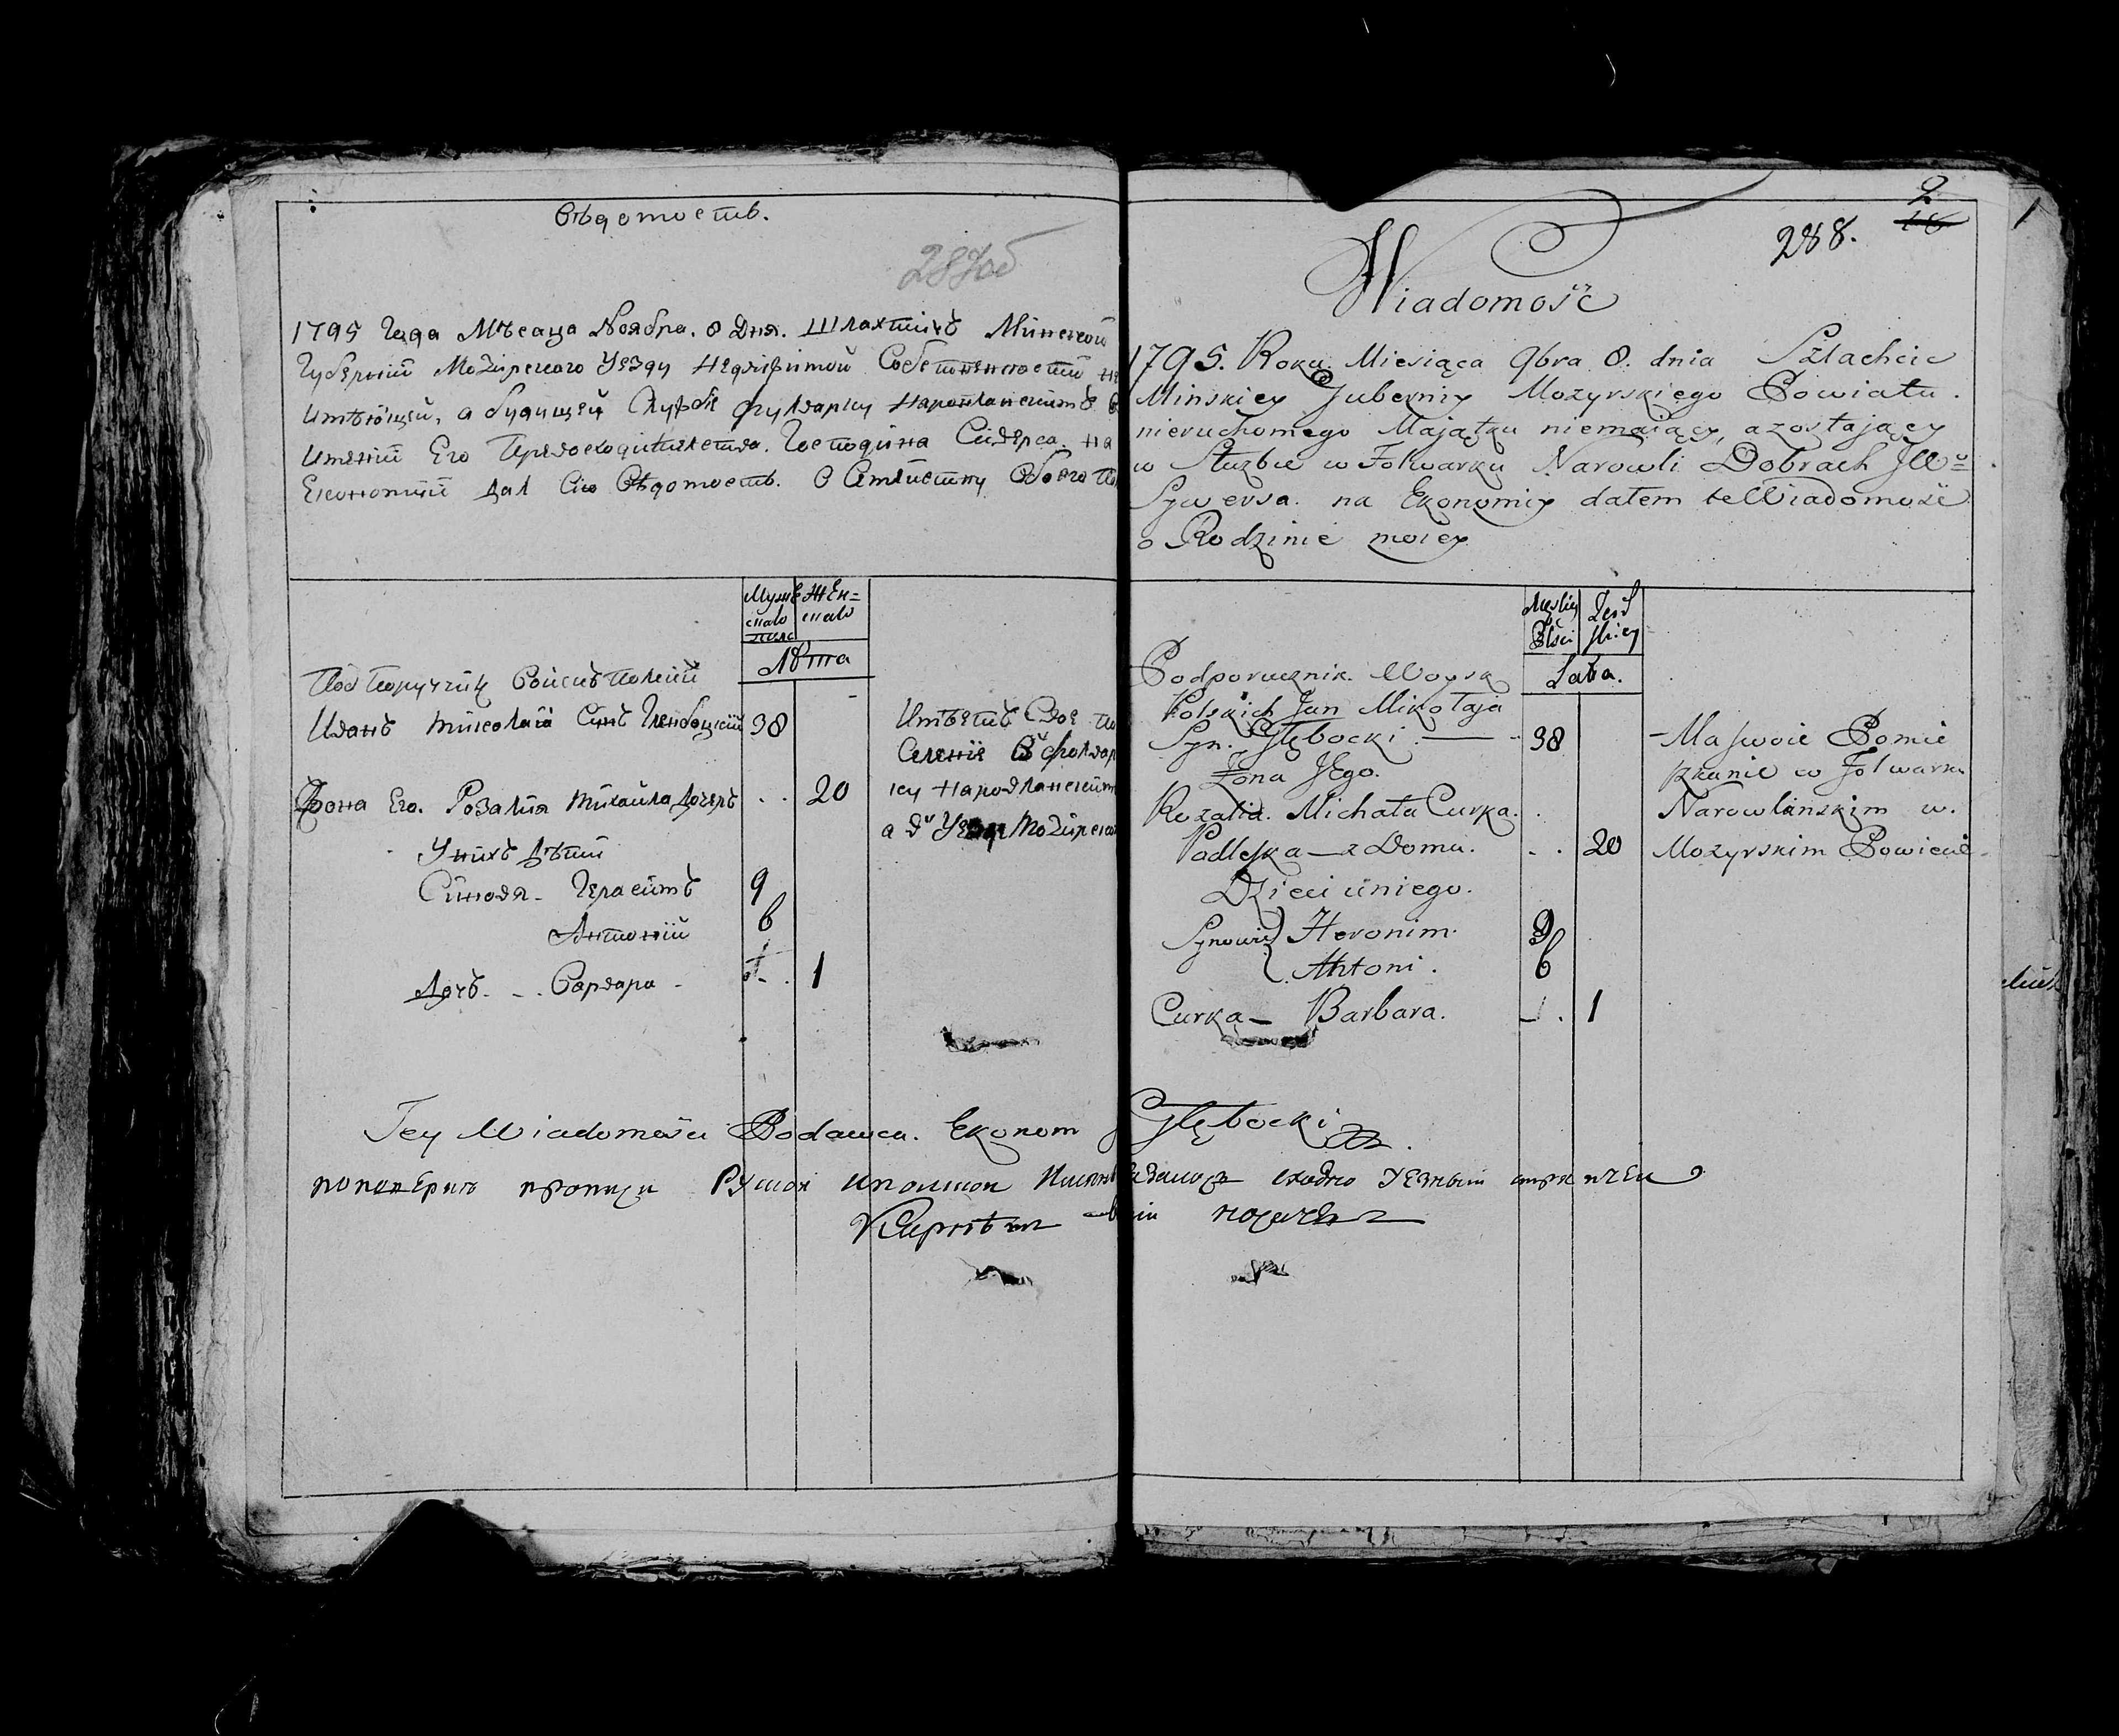 Вѣдомость.
287об
1795 Года Мѣсаца Ноября. 8 Дня. Шлахтичъ Минской
Губерніи Мозирского Уезду Недвижимой Собственности не
имѣющей, а будущей Службѣ фулварку
имении Его Превосходителства. Господина Сиверса. на
Економиии дал Сию Вѣдомость. О Обоего
Муже
скаго
пола
Женскаго
Лѣта
Под Поручник Войскъ Полских
Иванъ Миколая Синъ Гленбоцкий 38
Жона Его. Розалия Михайла Дочеръ . . 20
У нихъ Дѣтий
Синовя - Герасимъ 9
Антоний 6
Дочъ. - . Варвара - . 1
Имѣетъ Свое
Селение Въ фолвар
ку Наровлянским
а въ Уезди Мозирском
288.
2
1
Wiadomość
1795. Roku Miesiąca 9bra 8. dnia Szlachcic
Minskiey Guberniy Mozyrskiego Powiatu.
nieruchomego Maiątku niemaiący, a zostający
w Służbie w Folwarku Narowli Dobrach JW
Sywersa. na Ekonomiy dałem te Wiadomość
o Rodzinie moiey
Męskiey Płci
Żeńskiey
Lata.
Podporucznik. Woysk
Polskich Jan Mikołaja
Syn. Głębocki. 38
Żona Jego.
Rozalia. Michała Curka. .
Padleska — z Domu. . . 20
Dzieci u niego.
Synowie Heronim. 9
Antoni. 6
Curka — Barbara. . 1
- Ma swoie Pomie
szkanie w Folwarku
Narowlanskim w.
Mozyrskim Powiecie
Tey Wiadomości Podawca. Ekonom J Głębocki